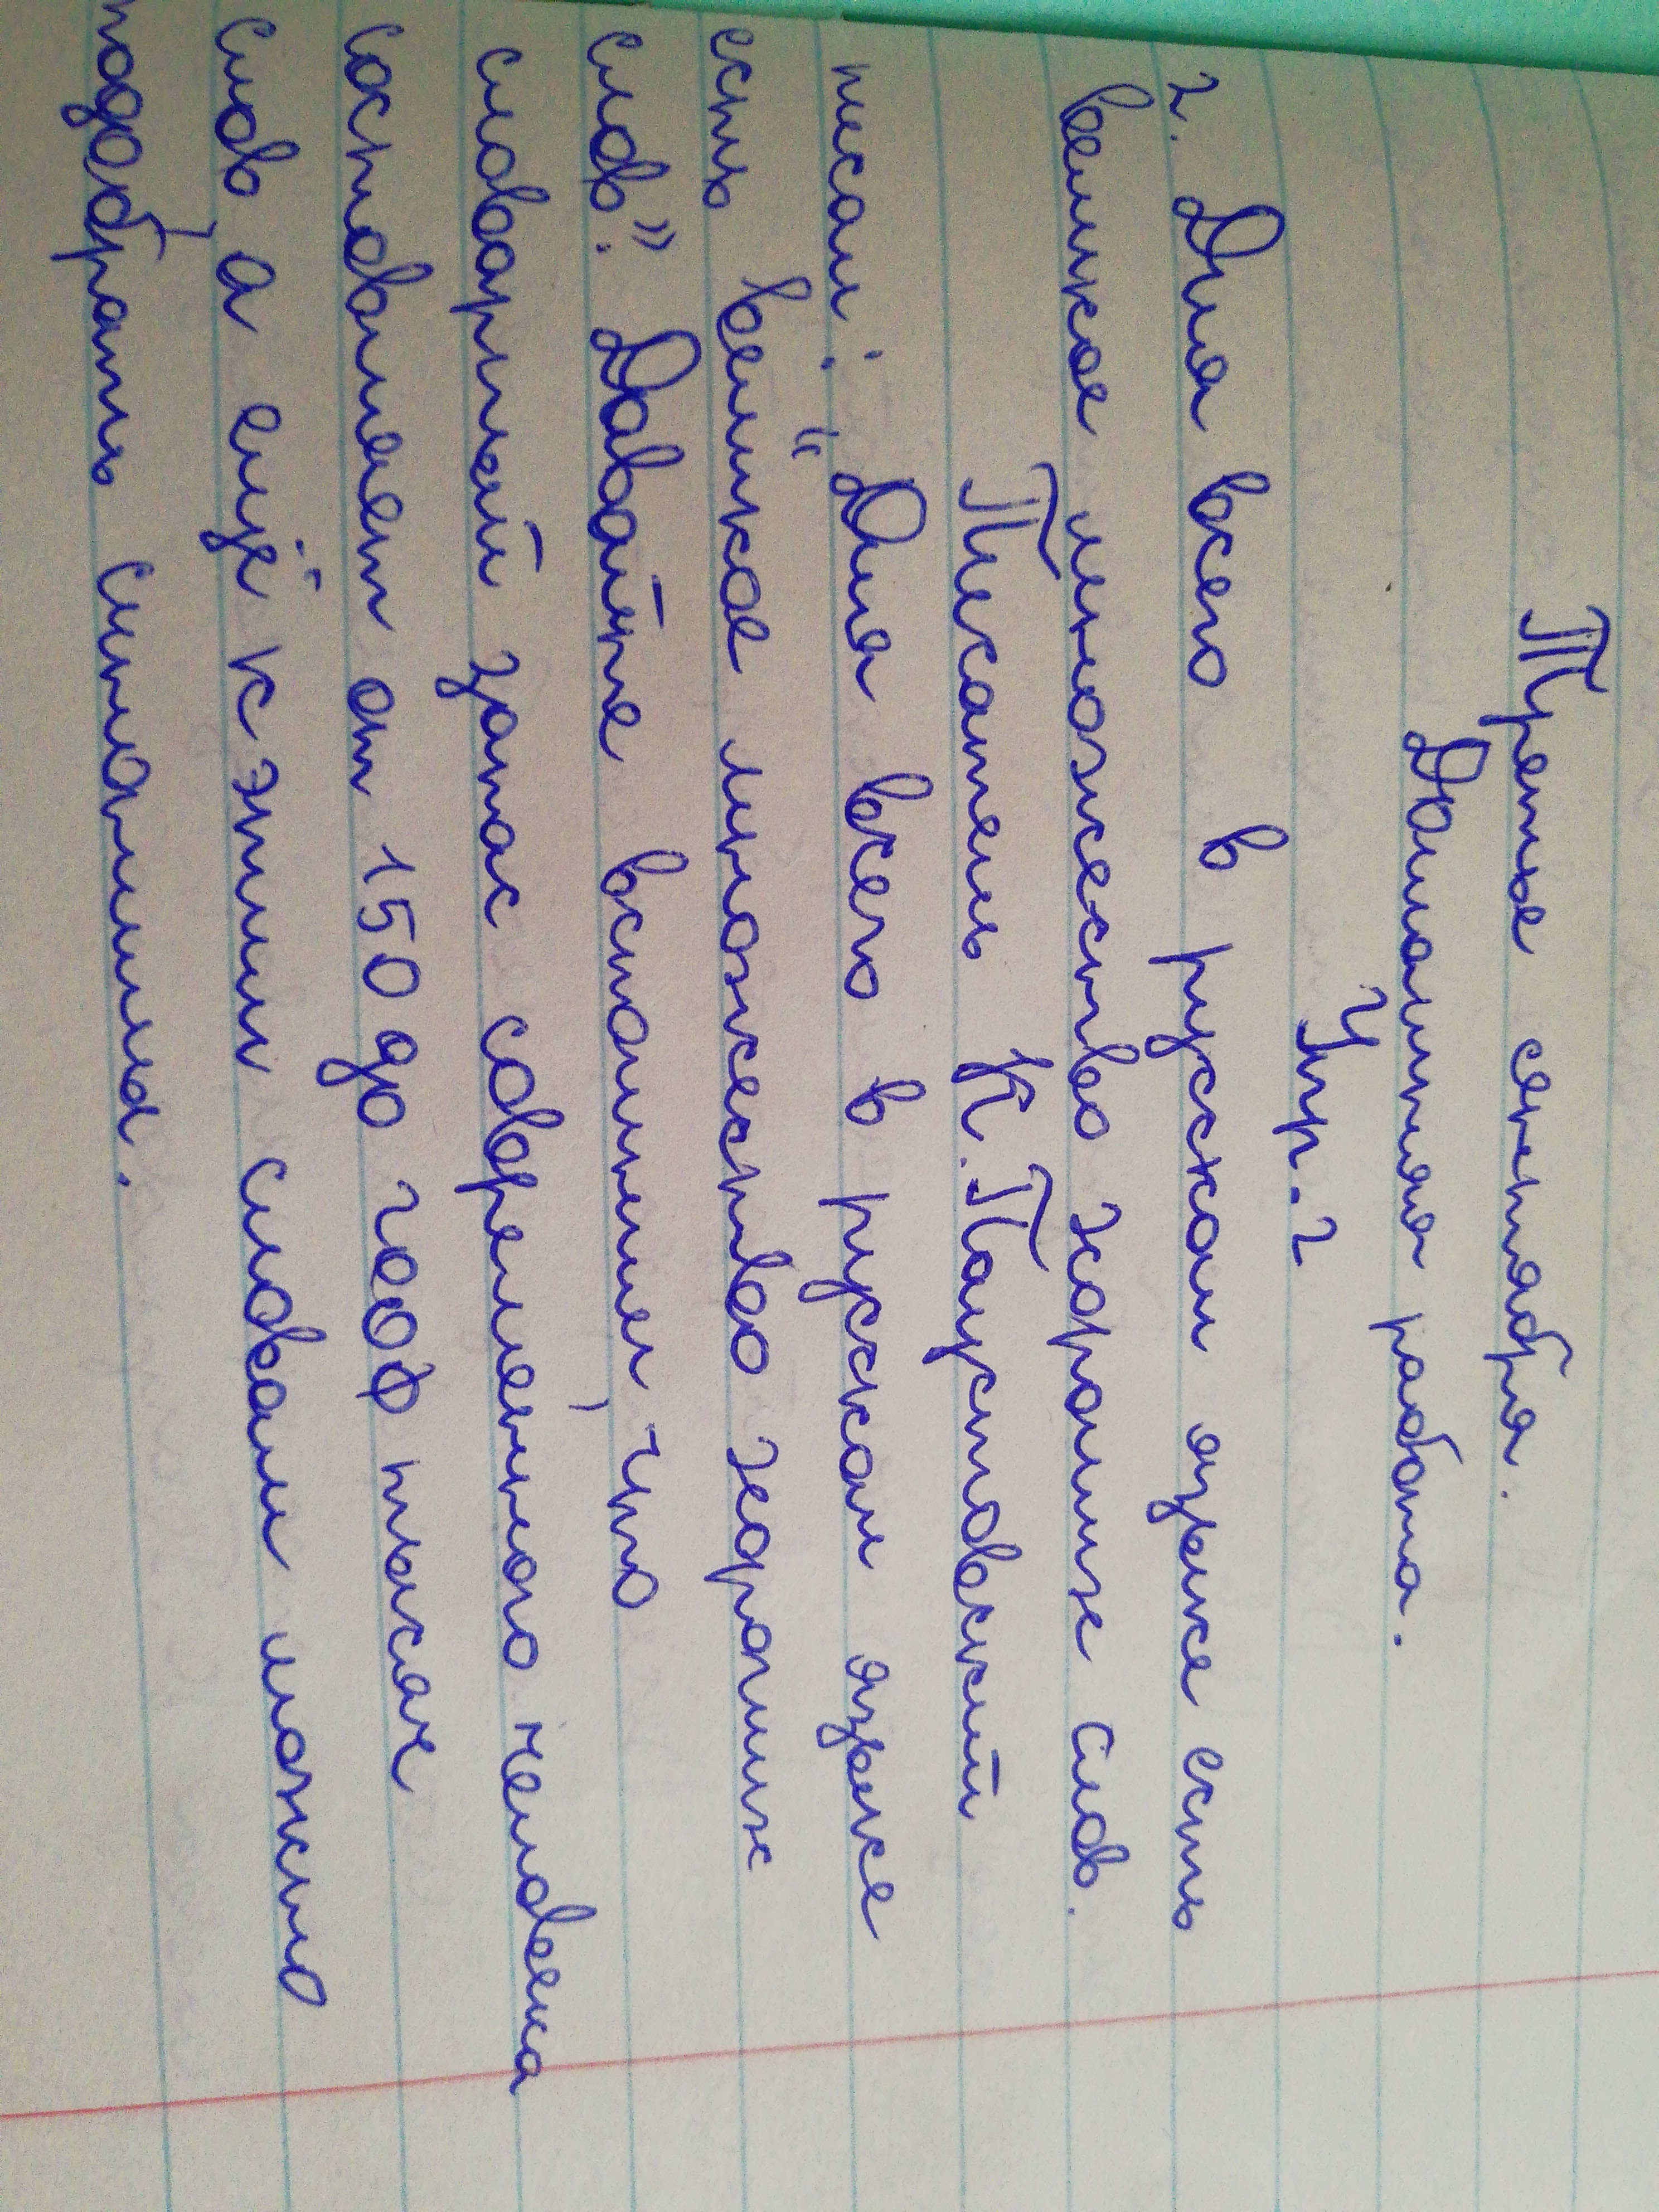 Третье сентября.
Домашняя работа.
Упр. 2
2. Для всего в русском языке есть
великое множество хороших слов.
Писатель К. Паустовский
писал: "Для всего в русском языке
есть великое множество хороших
слов". Давайте вспомним, что
словарный запас современного человека
составляет от 150 до 200 тысяч
слов, а ещё к этим словам можно
подобрать синонимы.